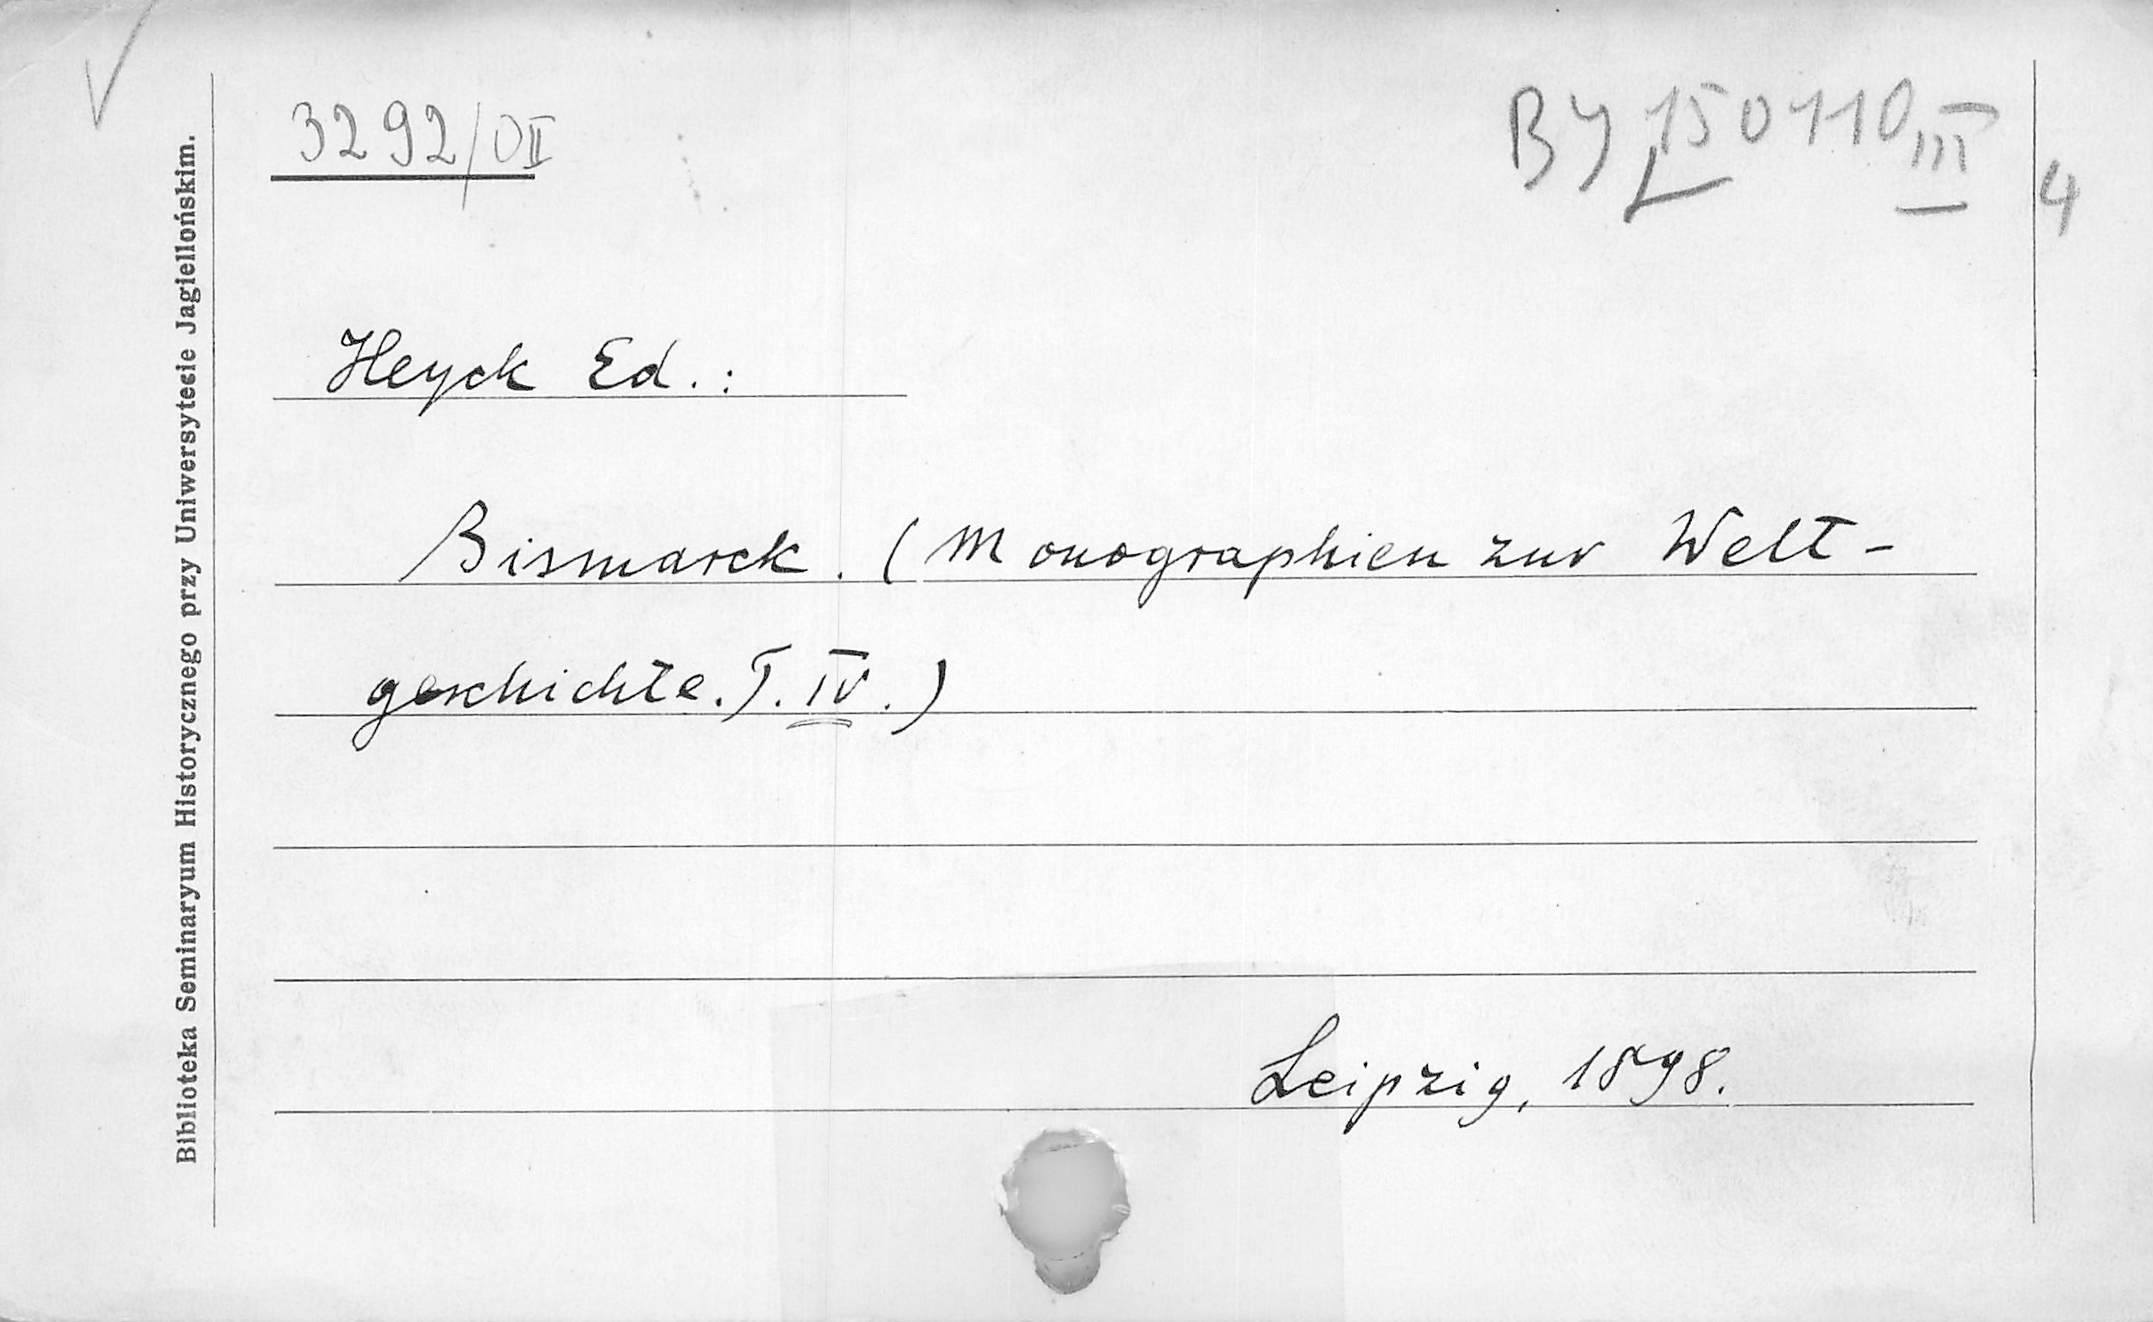 3292/DII
BJ 150110 III
4
Heyck Ed.:
Bismarck. (Monographien zur Welt-
geschichte. T. IV.)
Leipzig, 1898.
Biblioteka Seminaryum Historycznego przy Uniwersytecie Jagiellońskim.